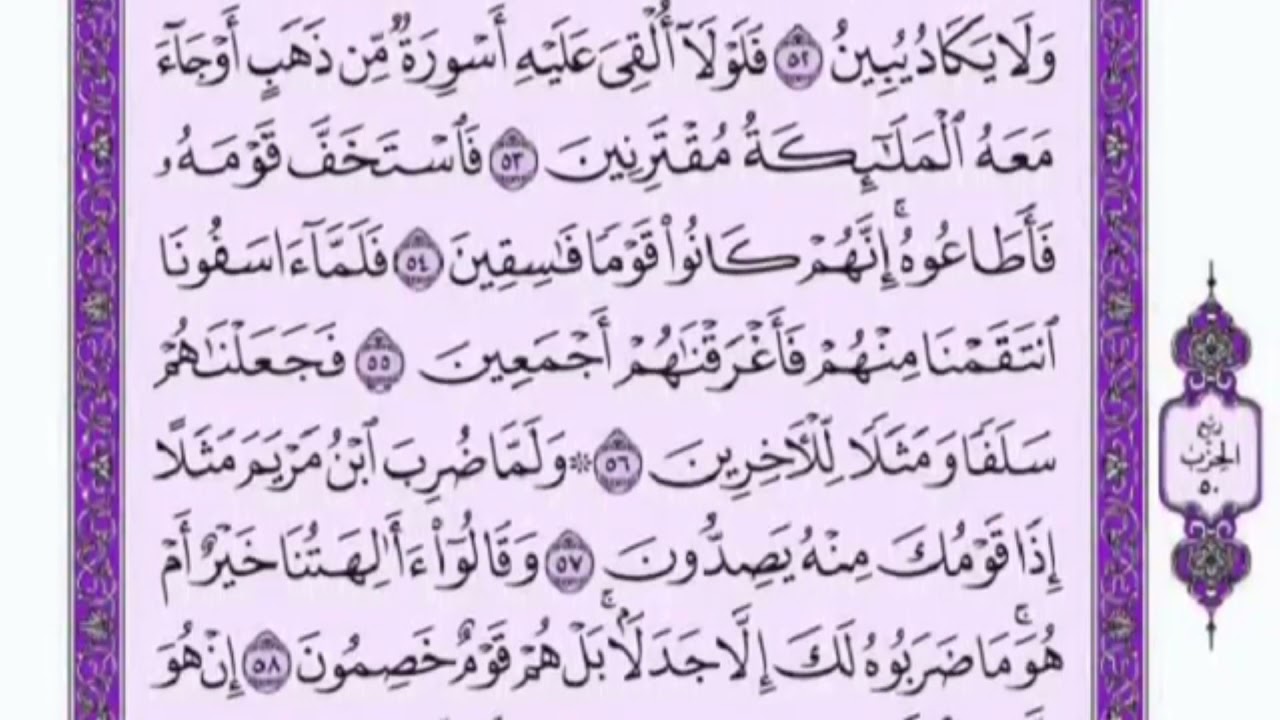 وَلَا يَكَادُ يُبِينُ ٥٢ فَلَوْلَآ أُلْقِىَ عَلَيْهِ أَسْوِرَةٌ مِّن ذَهَبٍ أَوْ جَآءَ
مَعَهُ ٱلْمَلَٰٓئِكَةُ مُقْتَرِنِينَ ٥٣ فَٱسْتَخَفَّ قَوْمَهُۥ
فَأَطَاعُوهُ ۚ إِنَّهُمْ كَانُوا۟ قَوْمًا فَٰسِقِينَ ٥٤ فَلَمَّآ ءَاسَفُونَا
ٱنتَقَمْنَا مِنْهُمْ فَأَغْرَقْنَٰهُمْ أَجْمَعِينَ ٥٥ فَجَعَلْنَٰهُمْ
سَلَفًا وَمَثَلًا لِّلْـَٔاخِرِينَ ٥٦ ۞ وَلَمَّا ضُرِبَ ٱبْنُ مَرْيَمَ مَثَلًا
إِذَا قَوْمُكَ مِنْهُ يَصِدُّونَ ٥٧ وَقَالُوٓا۟ ءَأَٰلِهَتُنَا خَيْرٌ أَمْ
هُوَ ۚ مَا ضَرَبُوهُ لَكَ إِلَّا جَدَلًۢا ۚ بَلْ هُمْ قَوْمٌ خَصِمُونَ ٥٨ إِنْ هُوَ
ربع
الحزب
٥٠